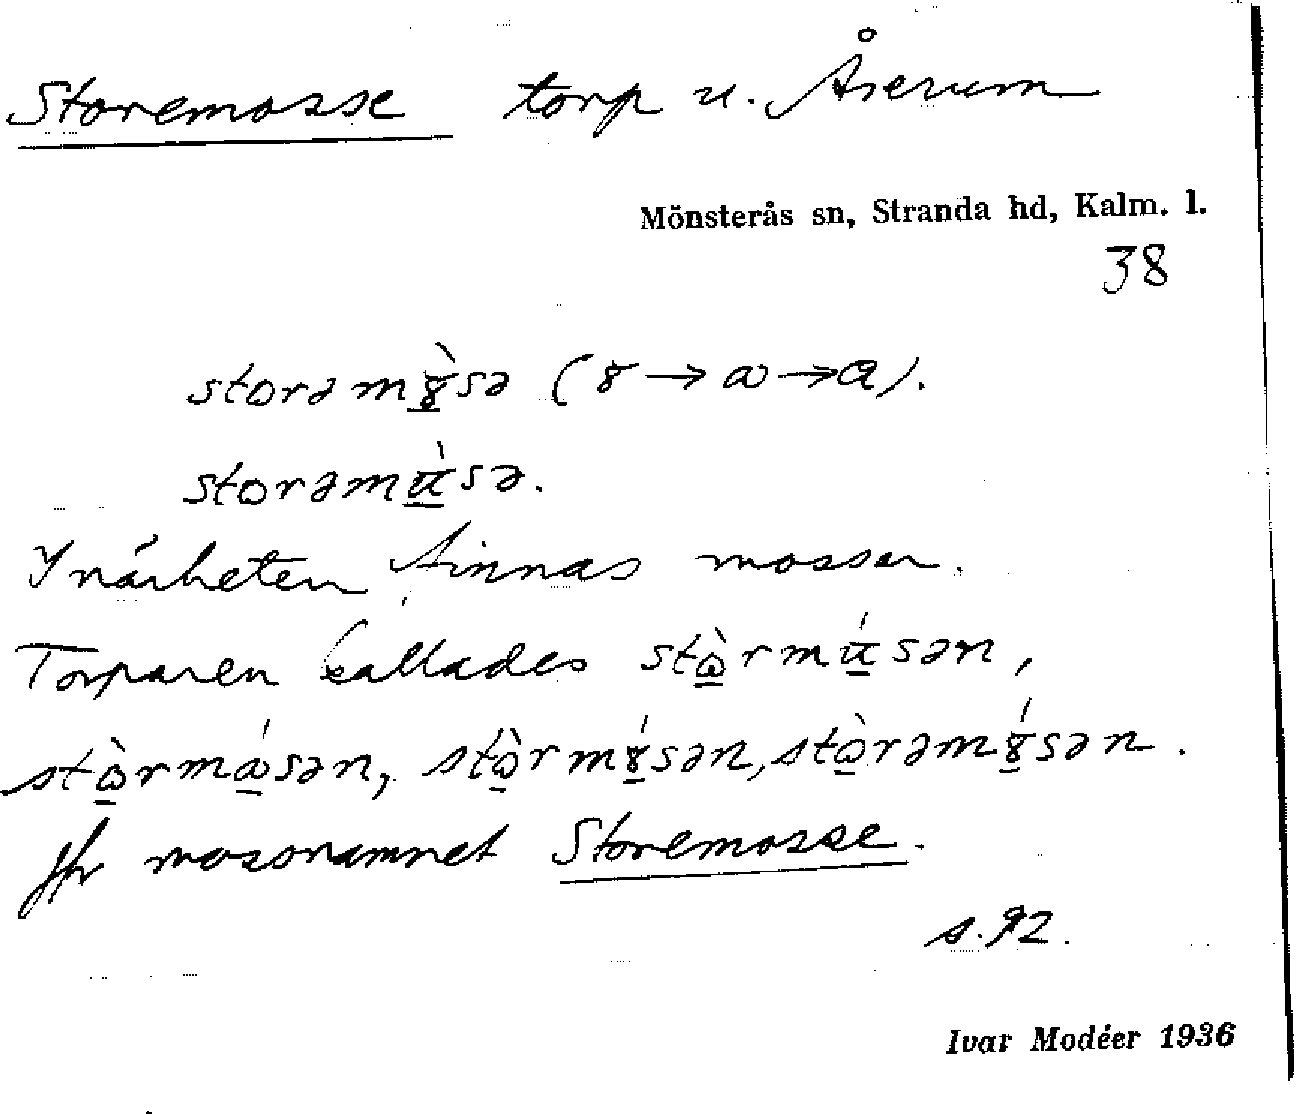 Storemosse torp u. Åserum
Mönsterås sn, Stranda hd, Kalm. l.
38
storəmɤ̱̀sə (ɤ → ꞷ → a).
storəmṳ̀sə.
I närheten finnas mossar.
Torparen kallades stꞷ̱̀rmṳ́sən,
stꞷ̱̀rmꞷ̱́sən, stꞷ̱̀rmɤ̱́sən, stꞷ̱̀rəmɤ̱́sən.
Jfr mossnamnet Storemosse.
s. 92.
Ivar Modéer 1936